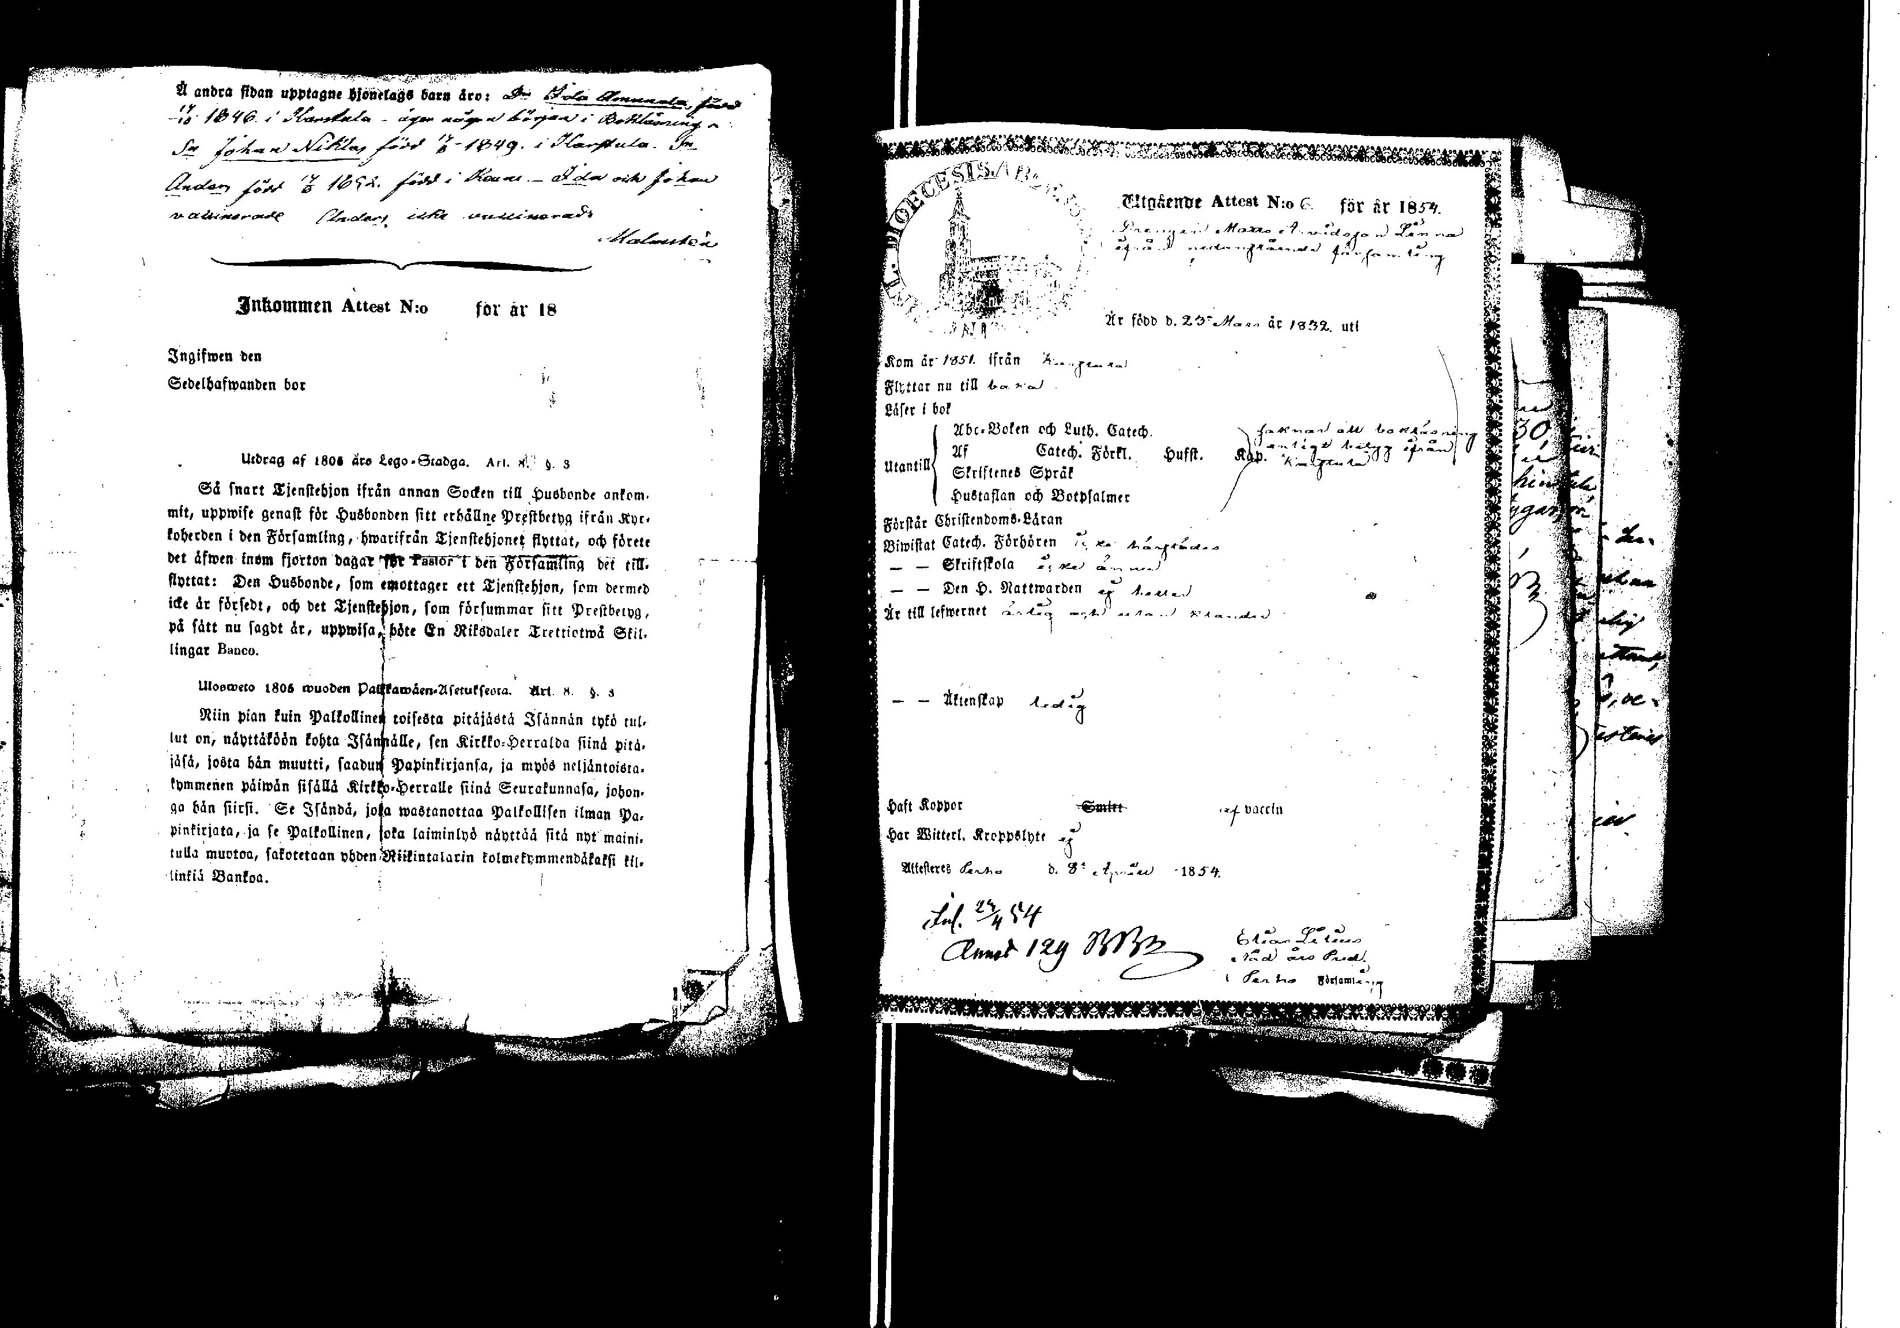 Å andra sidan upptagne hjonelags barn äro: Dr Ida Amanda, född
17/10 1846 i Karstula - äger någon början i Bokläsning
Sn Johan Niklas född 1849. i Karstula. Sn
Anders född 1852. född i - Ida och Johan
vaccinerade Anders icke vaccinerad
Malmstén
Inkommen Attest N:o för år 18
Ingifwen den
Sedelhafwanden bor
Utdrag af 1805 års Lego-Stadga. Art. 8. §. 3
Så snart Tjenstehjon ifrån annan Socken till Husbonde ankom-
mit, uppwise genast för Husbonden sitt erhållne Prestbetyg ifrån Kyr-
koherden i den Församling, hwarifrån Tjenstehjonet flyttat, och förete
det äfwen inom fjorton dagar för Pastor i den Församling det till-
flyttat: Den Husbonde, som emottager ett Tjenstehjon, som dermed
icke är försedt, och det Tjenstehjon, som försummar sitt Prestbetyg,
på sätt nu sagdt är, uppwisa, böte En Riksdaler Trettiotwå Skil-
lingar Banco.
Ulosweto 1805 wuoden Palkawäen-Asetuksesta. Art. 8. §. 3
Niin pian kuin Palkollinen toisesta pitäjästä Isännän tykö tul-
lut on, näyttäköön kohta Isännälle, sen Kirkko-Herralda siinä pitä-
jäsä, josta hän muutti, saadun Papinkirjansa, ja myös neljäntoista-
kymmenen päiwän sisällä Kirkko-Herralle siinä Seurakunnasa, johon-
ga hän siirsi. Se Isändä, joka wastanottaa Palkollisen ilman Pa-
pinkirjata, ja se Palkollinen, joka laiminlyö näyttää sitä nyt maini-
tulla muotoa, sakotetaan yhden Riikintalarin kolmekymmendäkaksi kil-
linkiä Bankoa.
DIOECESIS ABOËNSIS
Utgående Attest N:o 6. för år 1854.
Drengen Matts Arvidsson Linna
ifrån nedanstående församling
Är född d. 23 Mars år 1832. uti
Kom år 1851. ifrån
Flyttar nu till
Läser i bok
Abc-Boken och Luth. Catech.
Utantill Af Catech. Förkl. Hufst. Kap.
Skriftenes Språk
Hustaflan och Botpsalmer
saknar all bokläsning
enligt betyg ifrån
Förstår Christendoms-Läran
Biwistat Catech. Förhören icke härstädes
— — Skriftskola icke ännu
— — Den H. Nattwarden ej heller
Är till lefwernet ärlig och utan klander
— — Äktenskap ledig
Haft Koppor Smitt af vaccin
Har Witterl. Kroppslyte ej
Attesteres Perho d. 8 April 1854.
Inl. 24/4 54
Annot 129
Elias
i Perho Församling